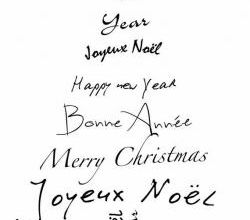 Year
Joyeux Noël
Happy new Year
Bonne Année
Merry Christmas
Joyeux Noël